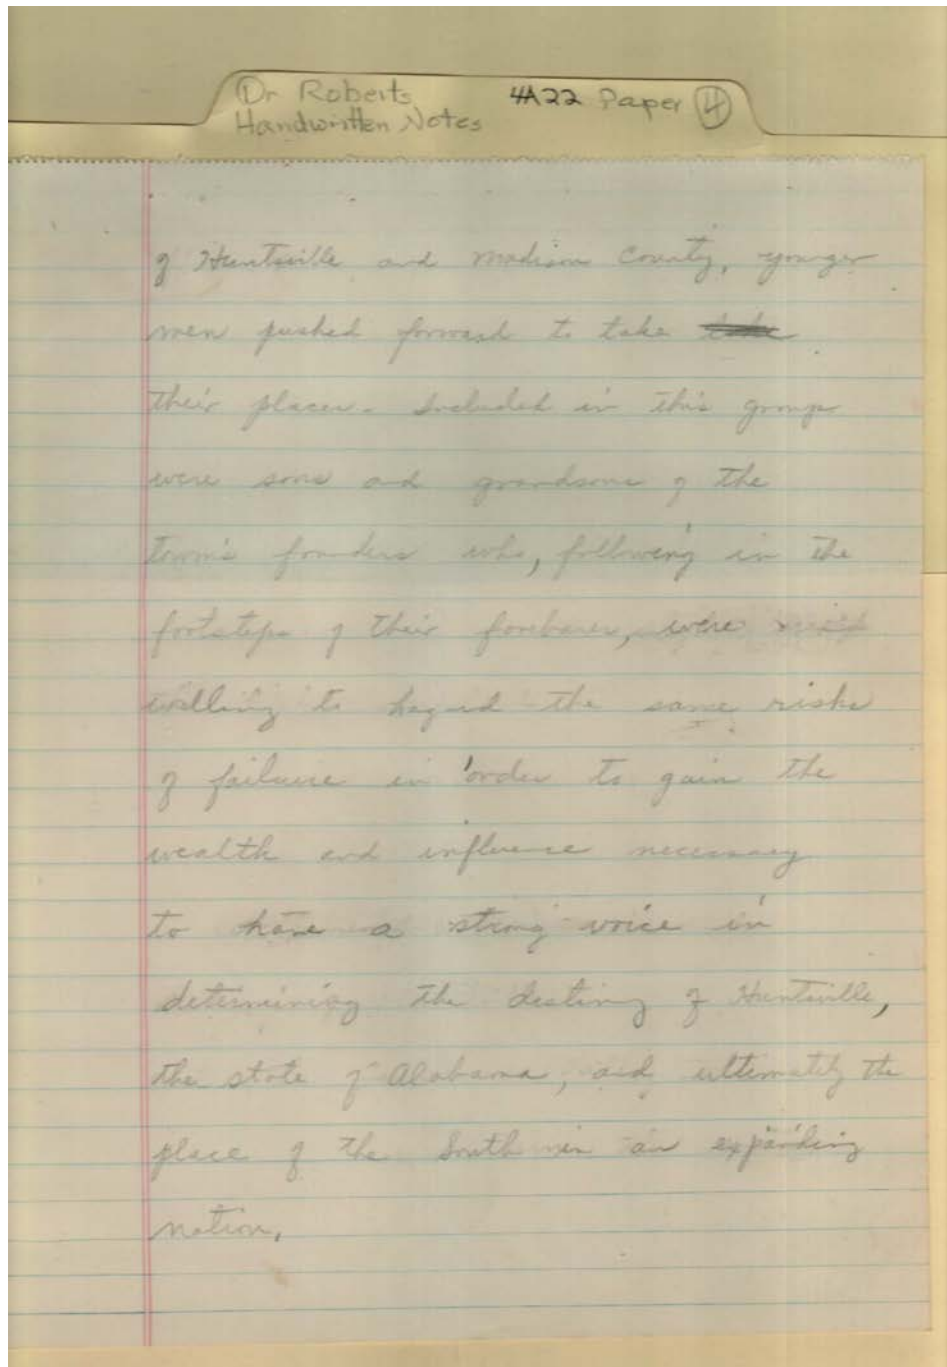 Dr Roberts 4A22 Paper 4
Handwritten Notes
of Huntsville and Madison County, younger
men pushed forward to take
their places. Included in this group
were sons and grandsons of the
town's founders who, following in the
footsteps of their forebares, were
willing to hazard the same risks
of failure in order to gain the
wealth and influence necessary
to have a strong voice in
determining the destiny of Huntsville,
the state of Alabama, and ultimately the
place of the South in an expanding
nation.